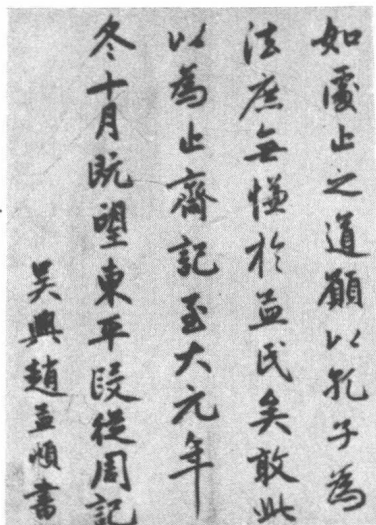 如處止之道願以孔子為
法庶無慊於益民矣敢此
以為止齊記至大元年
冬十月既望東平段從周記
吳興趙孟頫書